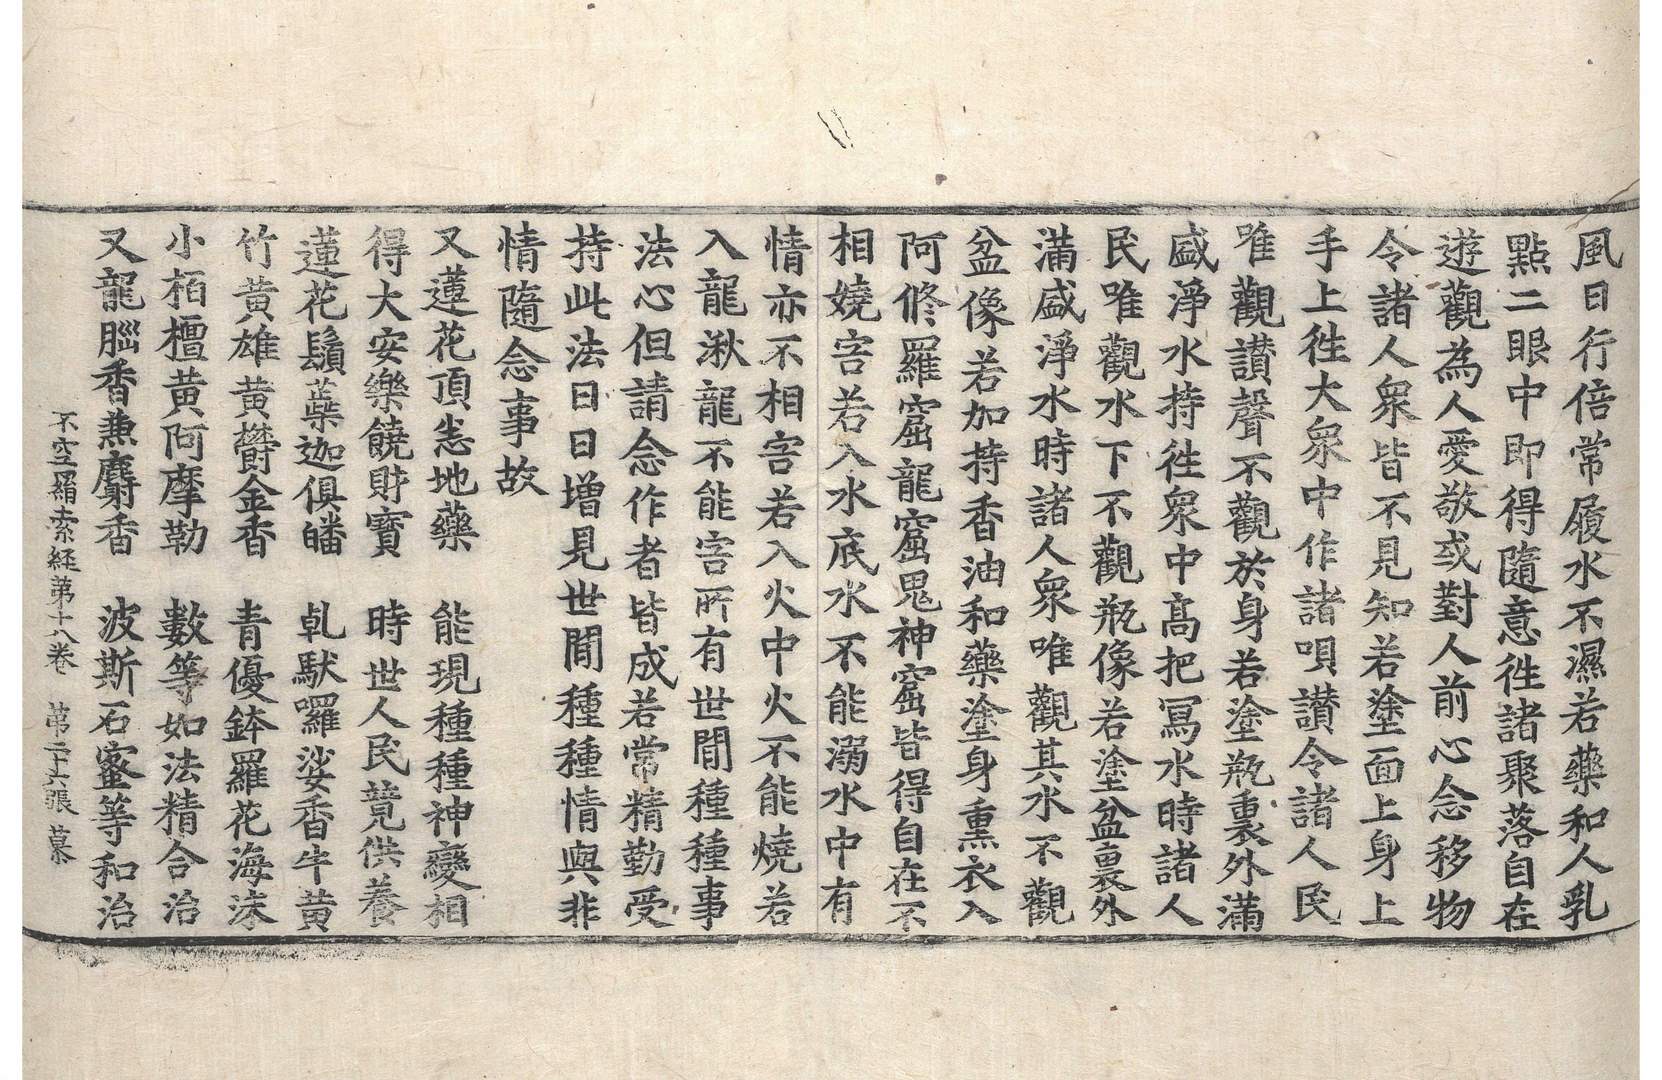 風日行倍常履水不濕若藥和人乳
點二眼中即得隨意徃諸聚落自在
遊觀為人愛敬或對人前心念移物
令諸人衆皆不見知若塗面上身上
手上徃大衆中作諸唄讃令諸人民
唯觀讃聲不觀於身若塗瓶裏外滿
盛淨水持徃衆中髙把冩水時諸人
民唯觀水下不觀瓶像若塗盆裏外
滿盛淨水時諸人衆唯觀其水不觀
盆像若加持香油和藥塗身熏衣入
阿修羅窟龍窟鬼神窟皆得自在不
相嬈害若入水底水不能溺水中有
情亦不相害若入火中火不能燒若
入龍湫龍不能害所有世間種種事
法心但請念作者皆成若常精勤受
持此法日日增見世間種種情與非
情隨念事故
又蓮花頂恙地藥　能現種種神變相
得大安樂饒財寳　時世人民競供養
蓮花鬚蘂迦俱皤　乹馱囉娑香牛黄
竹黄雄黄欝金香　青優鉢羅花海沫
小栢檀黄阿摩勒　數等如法精合治
又龍腦香兼麝香　波斯石蜜等和治
不空羂索経苐十八卷　苐二十六張　慕